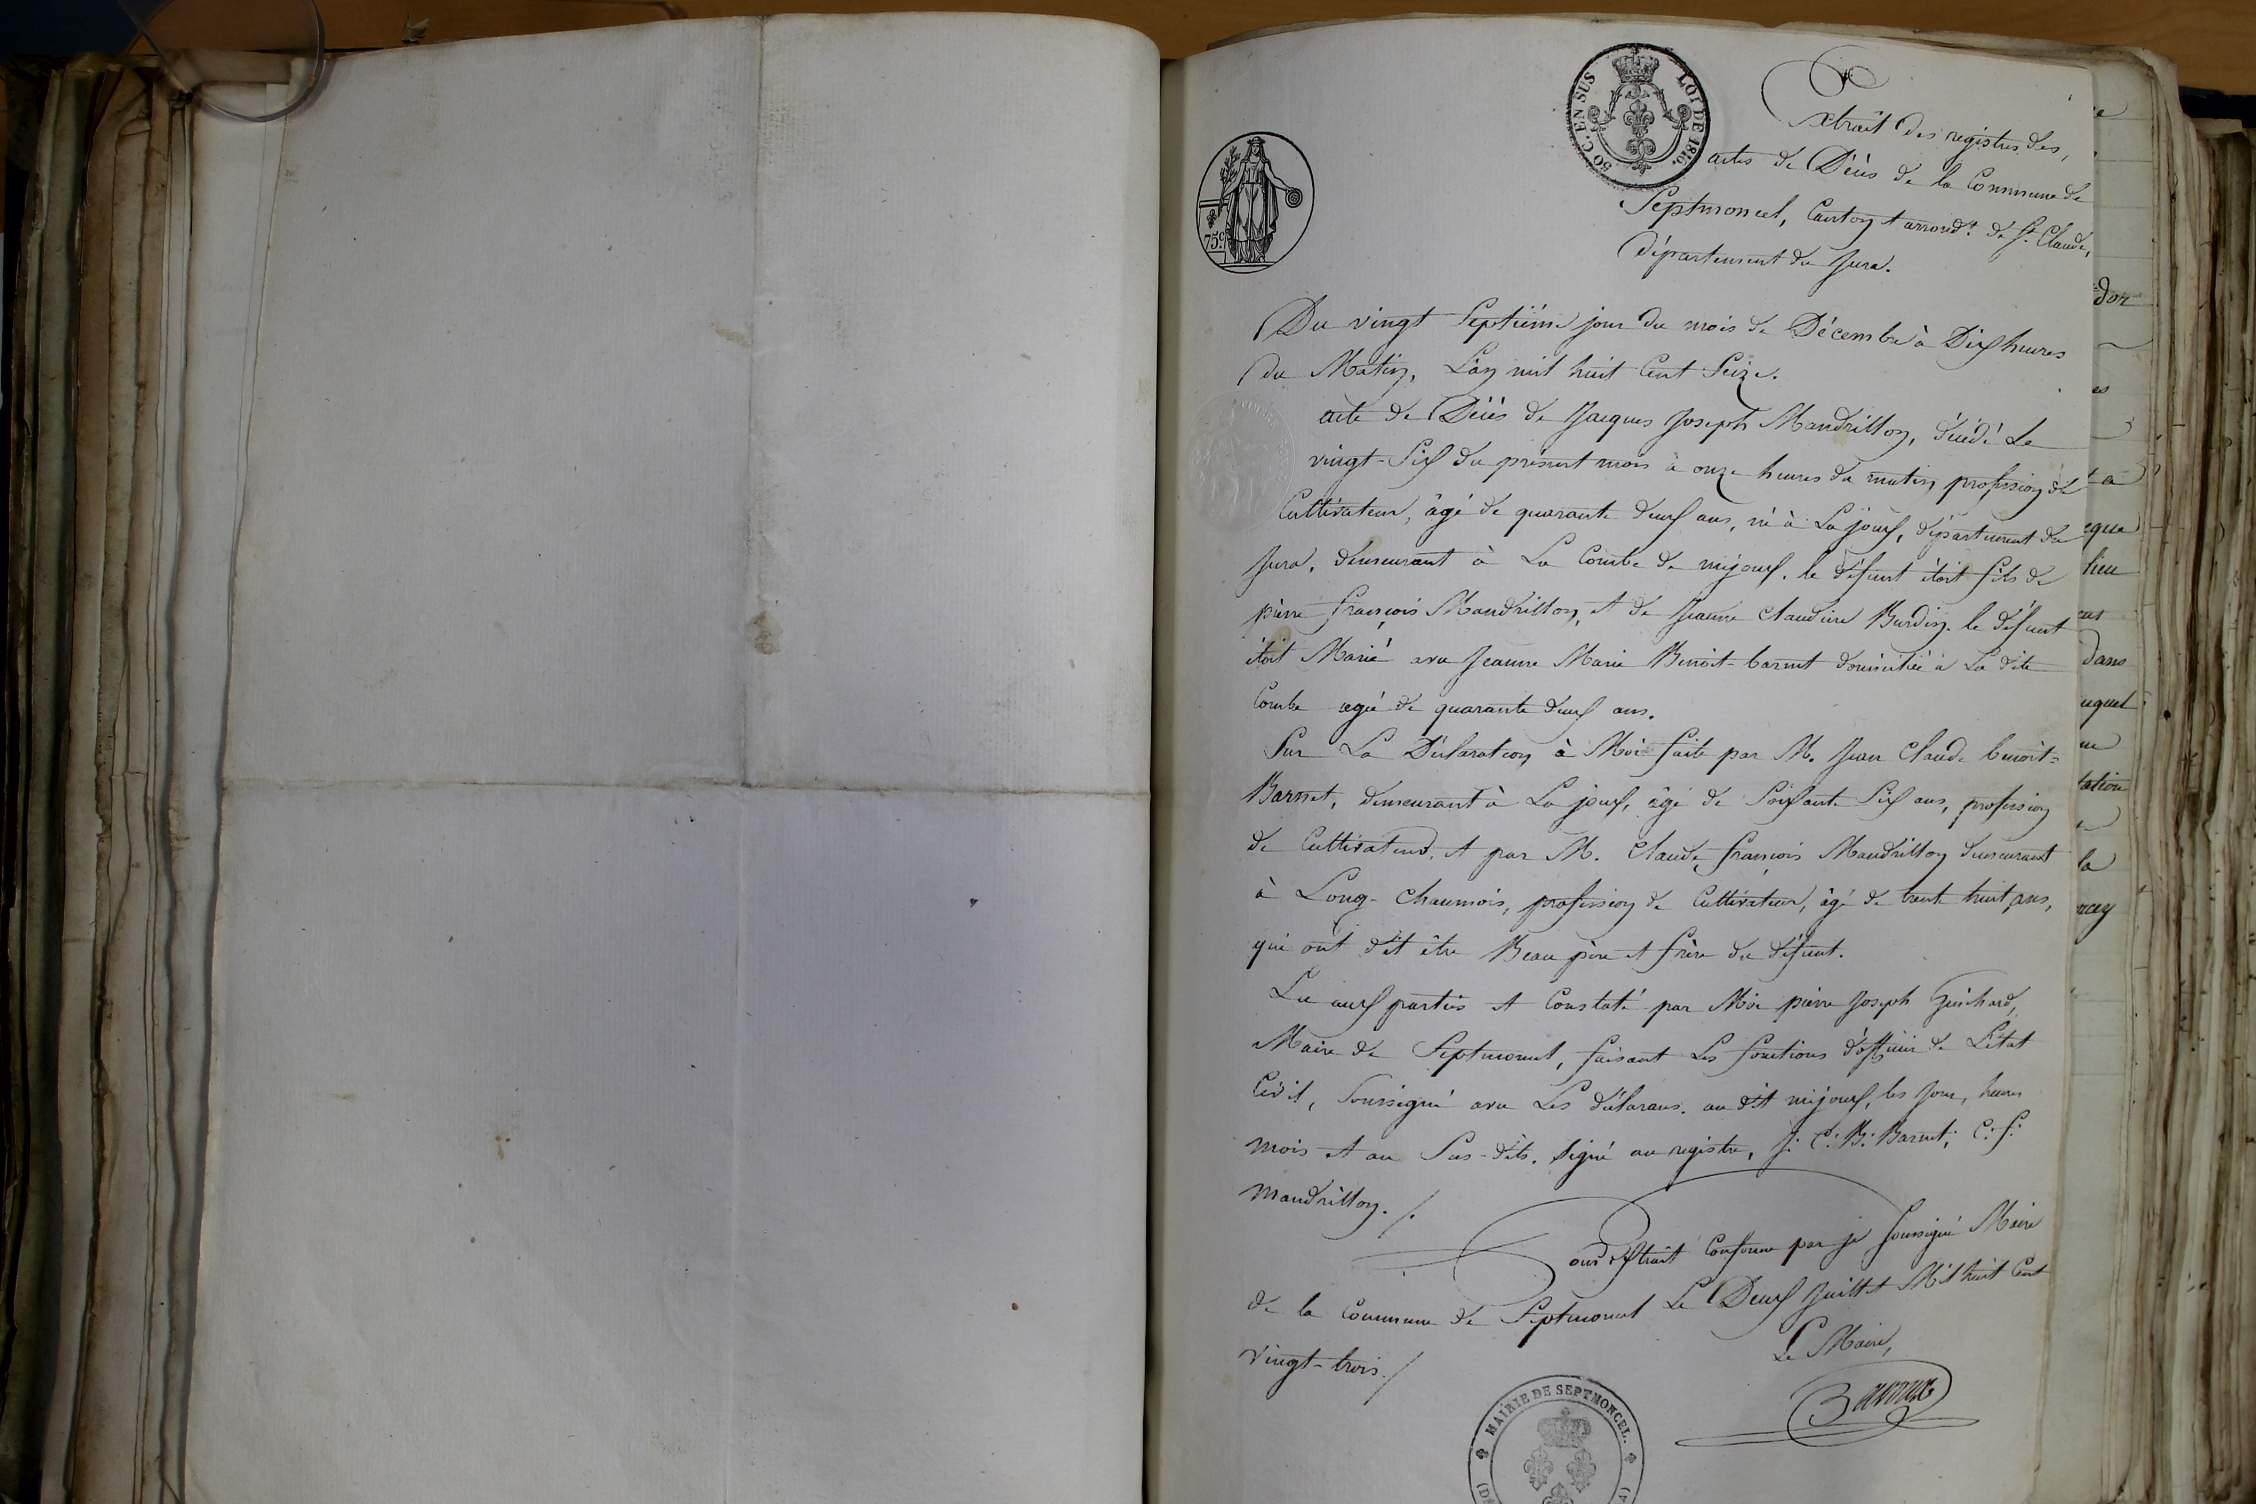 50 C. EN SUS LOI DE 1816.
75 c
Extrait des registres des
actes de Décès de la Commune de
Septmoncel, Canton et arrond.t de S.t Claude,
Département du Jura.
Du vingt Septième jour du mois de Décembre à Dix heures
du Matin, L'an mil huit Cent Seize.
acte de Décès de Jacques Joseph Mandrillon, décédé Le
vingt-Six du présent mois à onze heures du matin, profession de
Cultivateur, âgé de quarante deux ans, né à La joux, département du
Jura, demeurant à La Combe de mijoux, le défunt étoit fils de
pierre françois Mandrillon, et de Jeanne Claudine Burdin. le défunt
étoit Marié avec Jeanne Marie Benoit-barnet domiciliée à La dite
Combe agée de quarante deux ans.
Sur La Déclaration à Moi faite par M. Jean Claude benoit-
Barnet, demeurant à La joux, âgé de Soixante Six ans, profession
de Cultivateur, et par M. Claude françois Mandrillon demeurant
à Long-chaumois, profession de Cultivateur, âgé de trente huit ans,
qui ont dit être Beau père et frère du défunt.
Lu aux parties et Constaté par Moi pierre Joseph Guichard,
Maire de Septmoncel, faisant Les fonctions d'officier de L'état
Civil, Soussigné avec Les déclarans. au dit mijoux, les jour, heures
mois et an Sus-dits. Signé au registre, J: C: B: Barnet; C: f:
Mandrillon. /.
Pour Extrait Conforme par je Soussigné Maire
de la Commune de Septmoncel Le Deux Juillet Mil huit Cent
Vingt-trois /
Le Maire,
MAIRIE DE SEPTMONCEL.